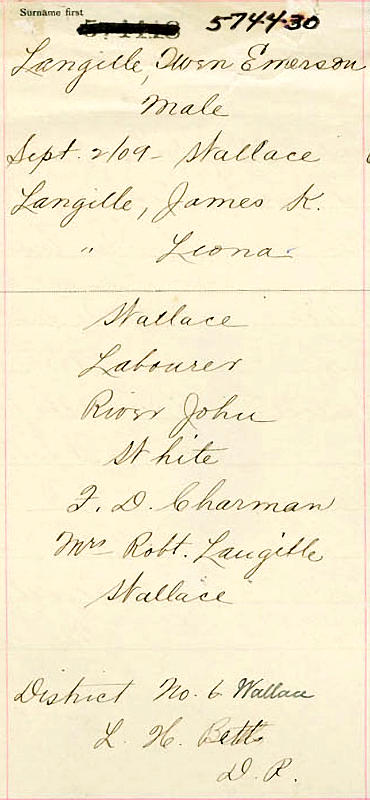 Surname first
574430
Langille, Owen Emerson
Male
Sept. 2/09 - Wallace
Langille, James K.
" Leona
Wallace
Labourer
River John
White
F. D. Charman
Mrs Robt. Langille
Wallace
District No. 6 Wallace
L. H. Betts
D. R.